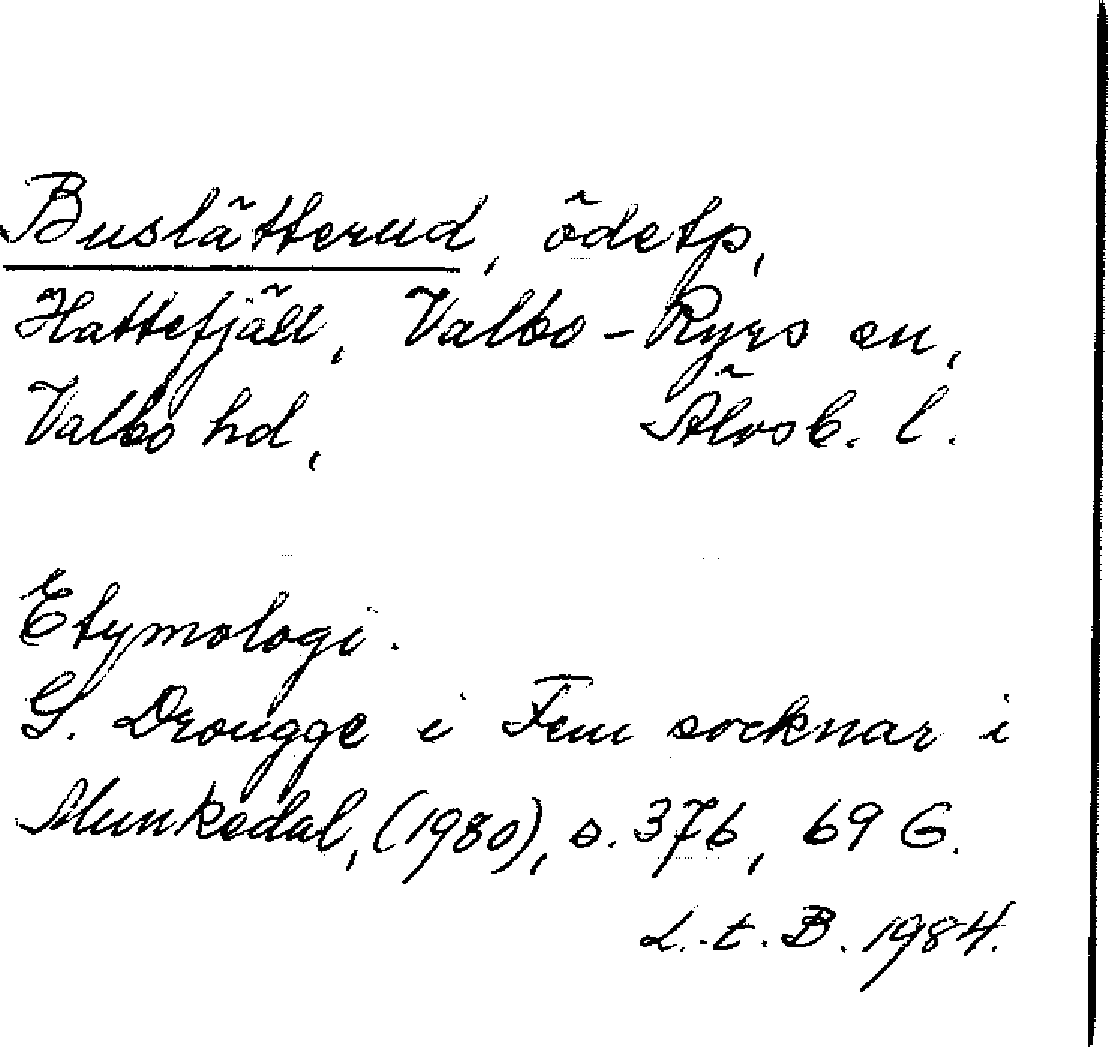 Buslätterud, ödetp,
Hattefjäll, Valbo-Ryrs sn,
Valbo hd, Älvsb. l.
Etymologi.
G. Drougge i Fem socknar i
Munkedal, (1980), s. 376, 69 G.
L. t. B. 1984.